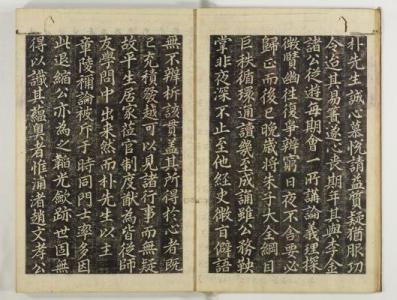 朴先生誠心慕悅請益質疑猶服功
令治其易簀遂心喪期年其與李金
諸公從遊每期會一所講論義理探
微賾幽往復爭辨窮日夜不舍要必
歸正而後已晚歲將朱子大全綱目
巨秩循環通讀幾至成誦雖公務鞅
掌非夜深不止至他經史微言僻語
無不辨析該貫盖其所得於心者旣
已充積發越可以見諸行事而無疑
故平生居家莅官制度猷為皆從師
友學問中出來然而朴先生以主
童陵禰論被斥于時同門士率多因
此退縮公亦為之韜光歛跡世固無
得以識其蘊奧者惟浦渚趙文孝公